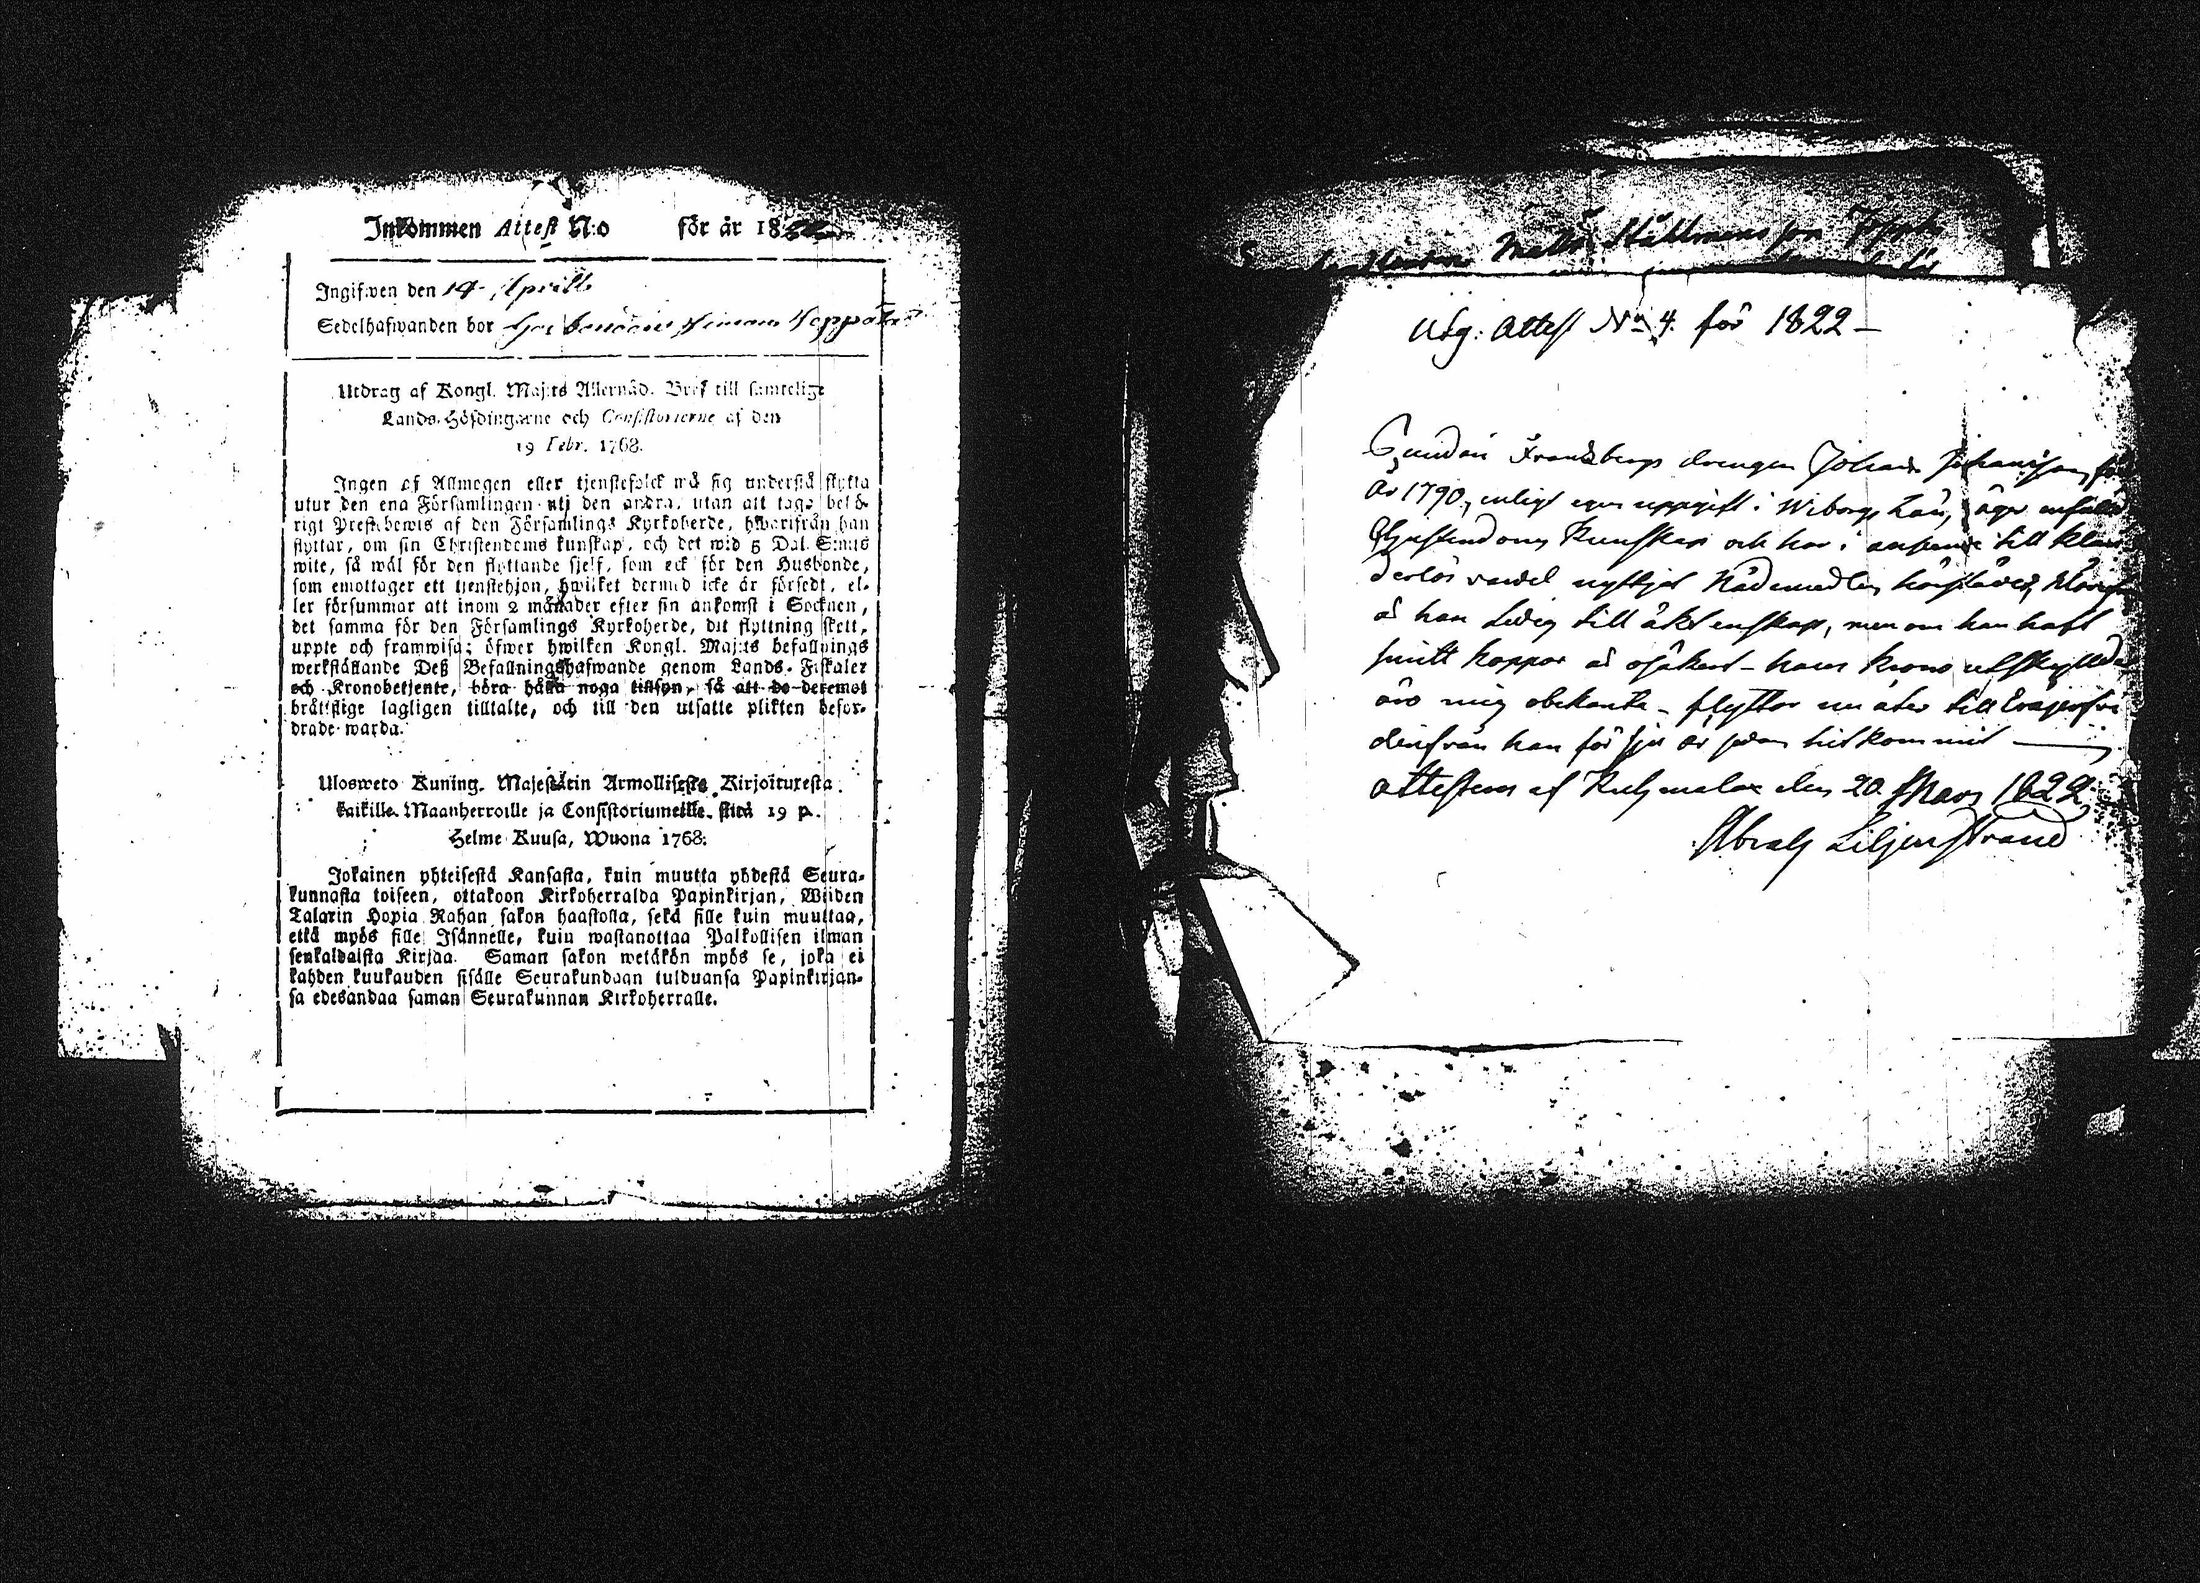 Inkommen Attest N:o för år 1822
Ingifwen den 14 Aprill
Sedelhafwanden bor
Utdrag af Kongl. Maj:ts Allernåd. Bref till samtelige
Lands-Höfdingarne och Consistorierne af den
19 Febr. 1768.
Ingen af Allmogen eller tjenstefolck må sig understå flytta
utur den ena Församlingen uti den andra, utan att taga behö-
rigt Prestebewis af den Församlings Kyrkoherde, hwarifrån han
flyttar, om sin Christendoms kunskap, och det wid 5 Dal. S:mts
wite, så wäl för den flyttande sjelf, som ock för den Husbonde,
som emottager ett tjenstehjon, hwilket dermed icke är försedt, el-
ler försummar att inom 2 månader efter sin ankomst i Socknen,
det samma för den Församlings Kyrkoherde, dit flyttning skett,
uppte och framwisa; öfwer hwilken Kongl. Maj:ts befallnings
werkställande Deß Befallningshafwande genom Lands-Fiskaler
och Kronobetjente, böra hålla noga tillsyn, så att de deremot
bråttslige lagligen tilltalte, och till den utsatte plikten befor-
drade warda.
Ulosweto Kuning. Majestätin Armollisesta Kirjoituxesta
kaikille Maanherroille ja Consistoriumeille, siitä 19 p.
Helme Kuusa, Wuona 1768.
Jokainen yhteisestä Kansasta, kuin muutta yhdestä Seura-
kunnasta toiseen, ottakoon Kirkoherralda Papinkirjan, Wiiden
Talarin Hopia Rahan sakon haastolla, sekä sille kuin muuttaa,
että myös sille Isännelle, kuin wastanottaa Palkollisen ilman
senkaldaista Kirjaa. Saman sakon wetäkön myös se, joka ei
kahden kuukauden sisälle Seurakundaan tulduansa Papinkirjan-
sa edesandaa saman Seurakunnan Kirkoherralle.
Matts
Utg: Attest No 4. för 1822 –
drengen Johan Johansson
år 1790, enligt egen uppgift i Wiborgs Län, äger
Christendoms Kunskap och har i anseende till
derlös vandel nyttjat Nådemedlen
är han Ledig till äktenskap, men om han haft
smitt koppor är osäkert – hans krono utskylder
äro mig obekanta – flyttar nu åter till Euräjerfvi
derifrån han för sju år sedan hitkommit —
Attesteras af den 20 Mars 1822
Liljenstrand